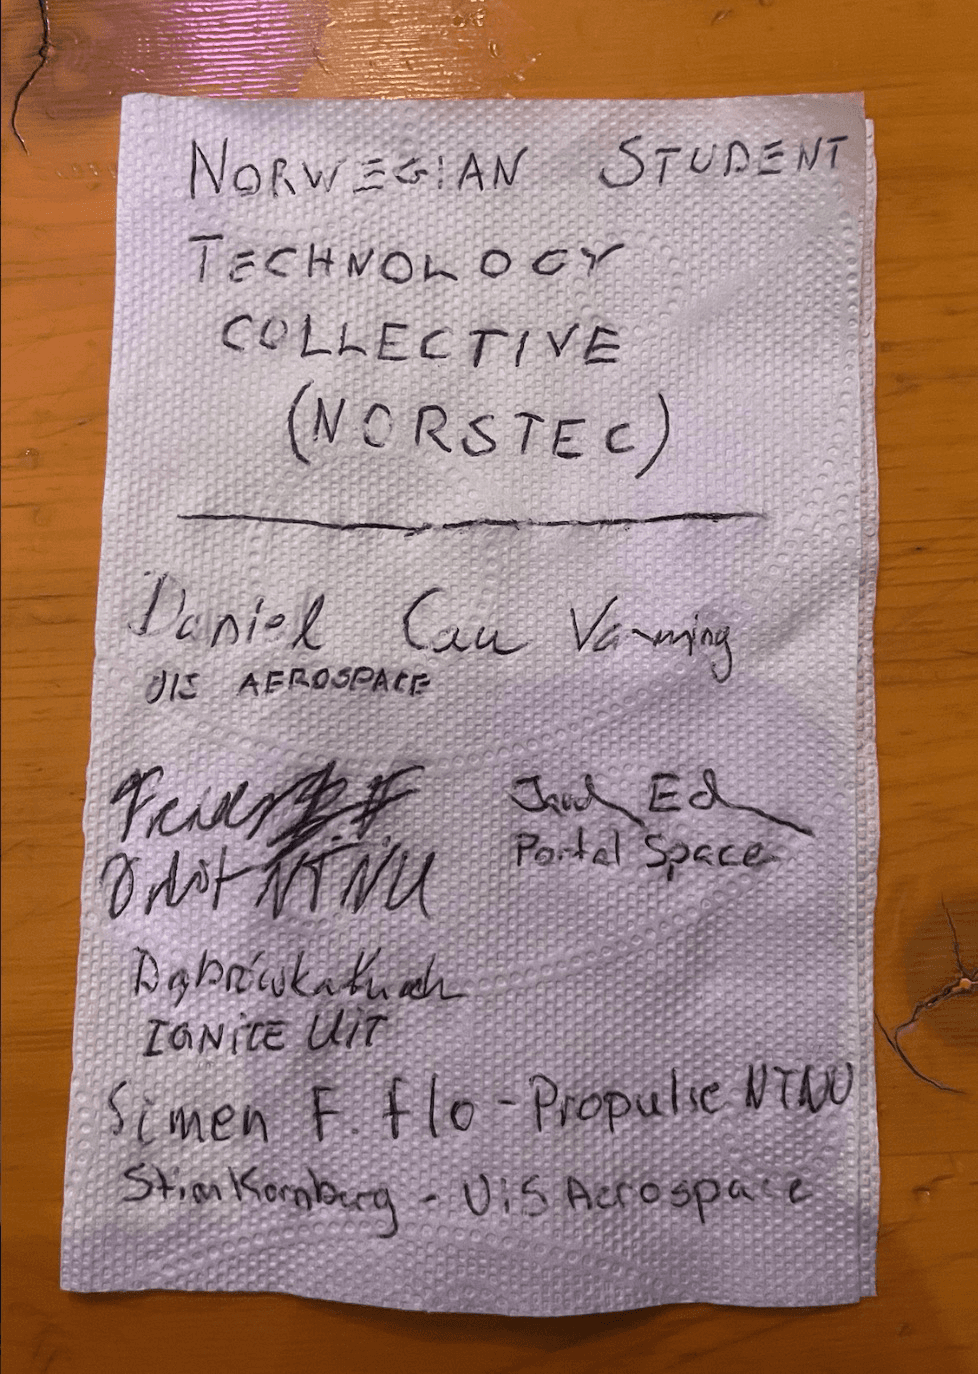 NORWEGIAN STUDENT
TECHNOLOGY
COLLECTIVE
(NORSTEC)
Daniel Cau Vamming
UIS AEROSPACE
Orbit NTNU
Ed
Portal Space
Dąbrówka
IGNITE UiT
Simen F. Flo - Propulse NTNU
Stian Kornberg - UiS Aerospace